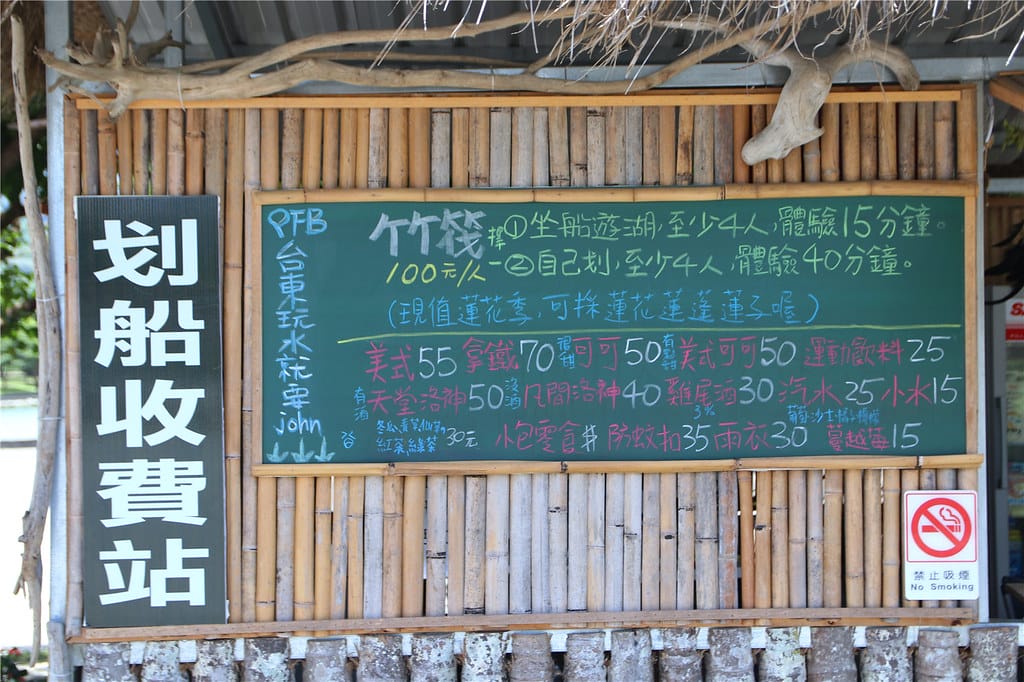 划船收費站
PFB
台東玩水就要john
竹筏
100元/人
擇一
①坐船遊湖,至少4人,體驗15分鐘。
②自己划,至少4人,體驗40分鐘。
(現值蓮花季,可採蓮花蓮蓬蓮子喔)
美式55 拿鐵70 很甜 可可50 有點甜 美式可可50 運動飲料25
有酒 天堂洛神50 沒酒 凡間洛神40 雞尾酒30 3% 汽水25 葡萄 沙士 橘子 檸檬 小水15
冬瓜,青草,仙草,
紅茶,綠茶 30元 小包零食# 防蚊扣35 雨衣30 蔓越莓15
禁止吸煙
No Smoking